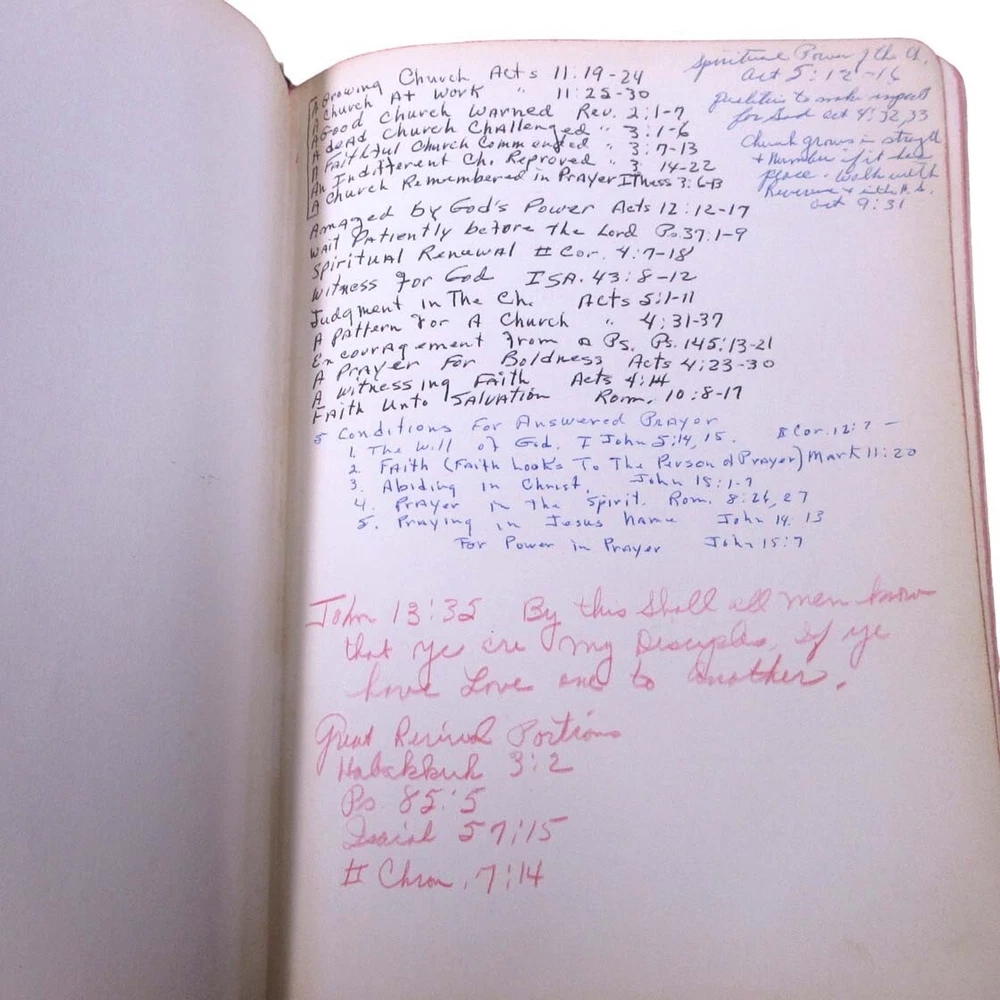 A Growing Church Acts 11:19-24
A Church At Work " 11:25-30
A Good Church Warned Rev. 2:1-7
A dead Church Challenged " 3:1-6
A Faithful Church Commended " 3:7-13
An Indifferent Ch. Reproved " 3 14-22
A Church Remembered in Prayer I Thess 3:6-13
Amazed by God's Power Acts 12:12-17
Wait Patiently before the Lord Ps. 37:1-9
Spiritual Renewal II Cor. 4:7-18
Witness for God ISA. 43:8-12
Judgment In The Ch. Acts 5:1-11
A Pattern For A Church " 4:31-37
Encouragement from a Ps. Ps. 145:13-21
A Prayer For Boldness Acts 4:23-30
A Witnessing Faith Acts 4:14
Faith Unto Salvation Rom. 10:8-17
Spiritual Power of the Ch.
Act 5:12-16
Qualities to make impact
for God Act 4:32,33
Church grows in strength
+ Number if it has
peace. Walk with
Reverence + with H.S.
Act 9:31
5 Conditions For Answered Prayer
1. The Will of God. I John 5:14,15. II Cor. 12:7 -
2. Faith (Faith Looks To The Person of Prayer) Mark 11:20
3. Abiding in Christ. John 15:1-7
4. Prayer in the Spirit. Rom. 8:26,27
5. Praying in Jesus Name John 14:13
For Power in Prayer John 15:7
John 13:35 By this Shall all men know
that ye are my Disciples, if ye
have Love one to another.
Great Revival Portions
Habakkuk 3:2
Ps. 85:5
Isaiah 57:15
II Chron. 7:14